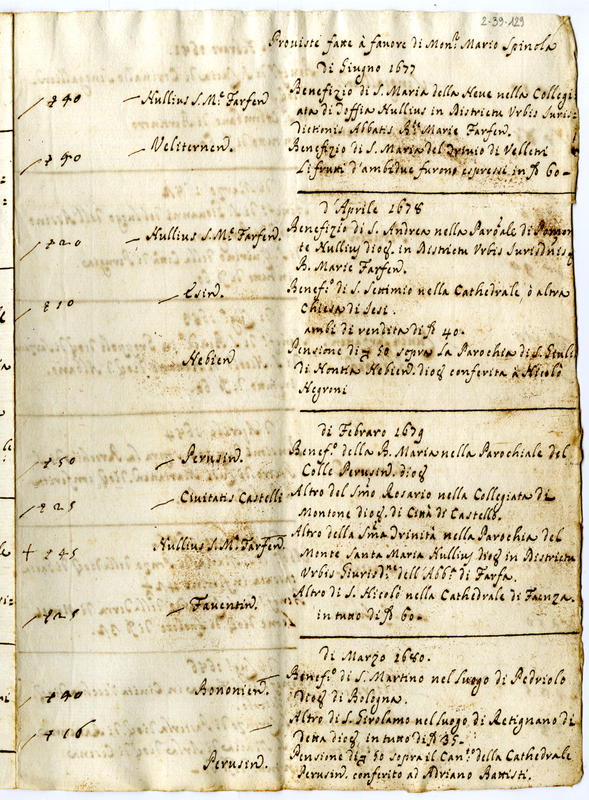 2-39-129
Proviste fatte à favore di Mon.r Mario Spinola
Di Giugno 1677
40 — Nullius S. M.e Farfen. Benefizio di S. Maria della Neve nella Collegi-
ata di Toffia Nullius in Districtu Vrbis Juris-
dictionis Abbatis B. Marie Farfen.
40 — Veliternen. Benefizio di S. Maria del Trivio di Velletri
Li frutti d'ambidue furono espressi in 60 -
d'Aprile 1678
20 — Nullius S. M.e Farfen. Benefizio di S. Andrea nella Par.ale di
te Nullius dioc. in Districtu Vrbis
B. Marie Farfen.
10 — Esin. Benef.o di S. Settimio nella Cathedrale, ò altra
Chiesa di Jesi.
ambi di rendita di 40.
Nebien. Pensione di 50 sopra la Parochia di S.
di Nontia Nebien. dioc. conferita à Nicolò
Negroni
di Febraro 1679
50 — Perusin. Benef.o della B. Maria nella Parochiale del
Colle Perusin. dioc.
25 — Civitatis Castelli Altro del S.mo Rosario nella Collegiata di
Montone dioc. di Città di Castello.
+ 45 Nullius S. M. Farfen. Altro della S.ma Trinità nella Parochia del
Monte Santa Maria Nullius dioc. in Districtu
Vrbis Giurisd.ne dell'Abb.a di Farfa.
25 — Faventin. Altro di S. Nicolò nella Cathedrale di Faenza.
in tutto di 60 -
di Marzo 1680.
40 Bononien. Benef.o di S. Martino nel luogo di Pedriolo
Dioc. di Bologna.
16 — Altro di S. Girolamo nel luogo di Retignano di
Detta dioc. in tutto di 35 -
Perusin. Pensione di 50 sopra il Can.to della Cathedrale
Perusin. conferito ad Adriano Battisti.